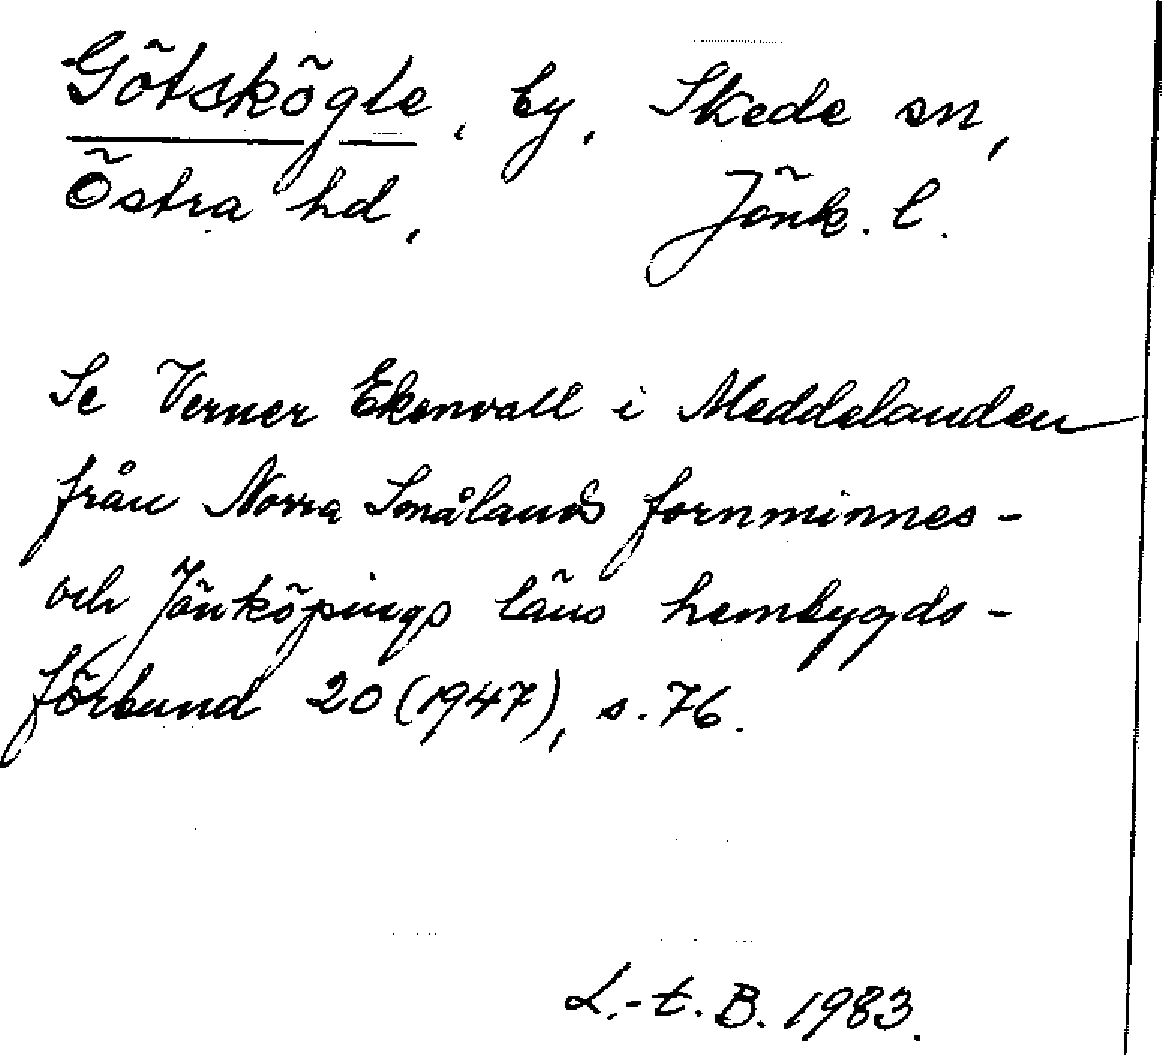 Götskögle, by, Skede sn,
Östra hd, Jönk. l.
Se Verner Ekenvall i Meddelanden
från Norra Smålands fornminnes-
och Jönköpings läns hembygds-
förbund 20 (1947), s. 76.
L.-t. B. 1983.